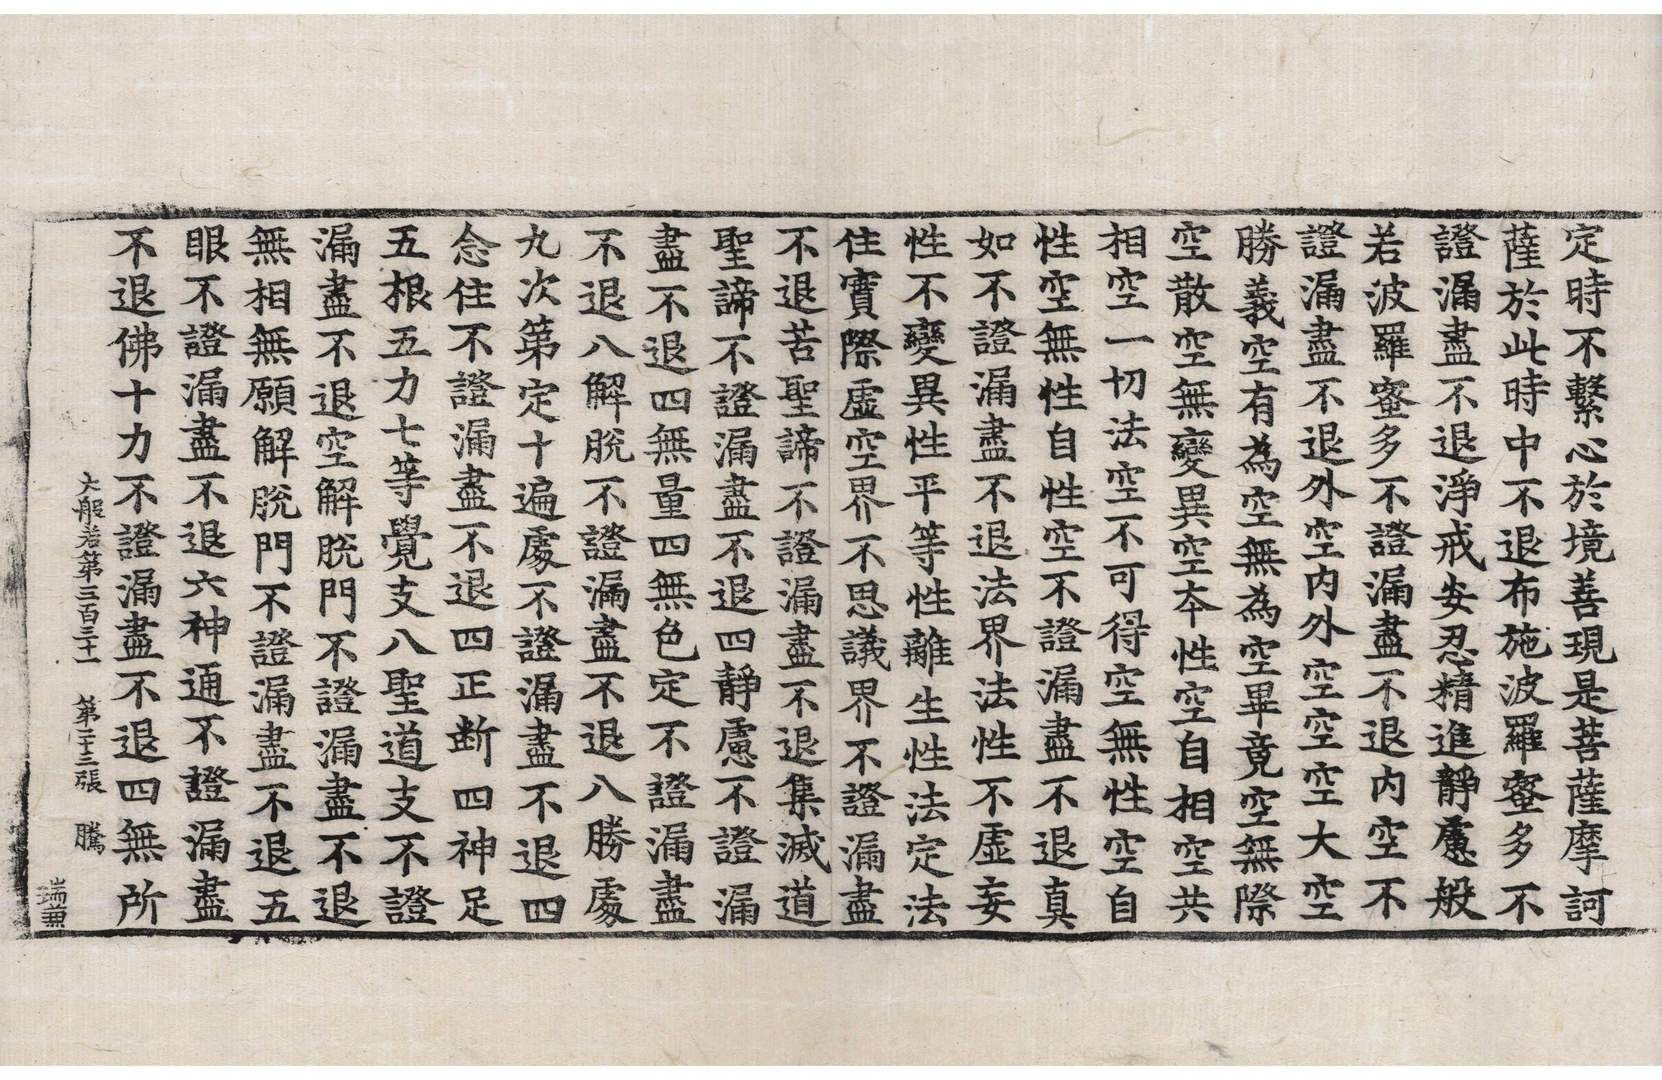 定時不繫心於境善現是菩薩摩訶
薩於此時中不退布施波羅蜜多不
證漏盡不退淨戒安忍精進靜慮般
若波羅蜜多不證漏盡不退內空不
證漏盡不退外空內外空空空大空
勝義空有為空無為空畢竟空無際
空散空無變異空本性空自相空共
相空一切法空不可得空無性空自
性空無性自性空不證漏盡不退真
如不證漏盡不退法界法性不虛妄
性不變異性平等性離生性法定法
住實際虛空界不思議界不證漏盡
不退苦聖諦不證漏盡不退集滅道
聖諦不證漏盡不退四靜慮不證漏
盡不退四無量四無色定不證漏盡
不退八解脫不證漏盡不退八勝處
九次第定十遍處不證漏盡不退四
念住不證漏盡不退四正斷四神足
五根五力七等覺支八聖道支不證
漏盡不退空解脫門不證漏盡不退
無相無願解脫門不證漏盡不退五
眼不證漏盡不退六神通不證漏盡
不退佛十力不證漏盡不退四無所
大般若第三百三十一 第二十三張 騰